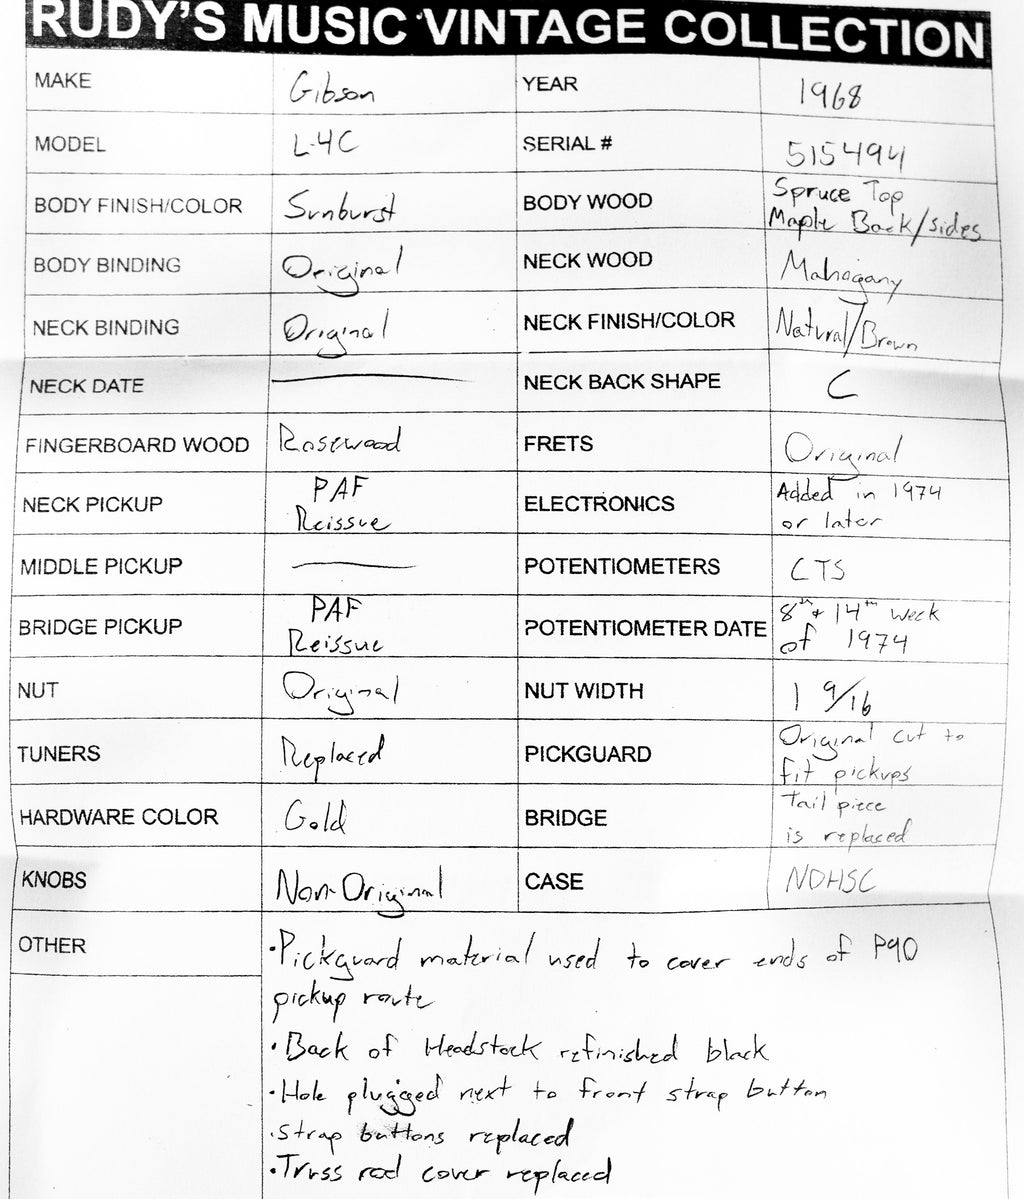 RUDY'S MUSIC VINTAGE COLLECTION
MAKE Gibson YEAR 1968
MODEL L-4C SERIAL # 515494
BODY FINISH/COLOR Sunburst BODY WOOD Spruce Top
Maple Back/sides
BODY BINDING Original NECK WOOD Mahogany
NECK BINDING Original NECK FINISH/COLOR Natural/Brown
NECK DATE — NECK BACK SHAPE C
FINGERBOARD WOOD Rosewood FRETS Original
NECK PICKUP PAF
Reissue ELECTRONICS Added in 1974
or later
MIDDLE PICKUP — POTENTIOMETERS CTS
BRIDGE PICKUP PAF
Reissue POTENTIOMETER DATE 8th + 14th week
of 1974
NUT Original NUT WIDTH 1 9/16
TUNERS Replaced PICKGUARD Original cut to
fit pickups
HARDWARE COLOR Gold BRIDGE tail piece
is replaced
KNOBS Non-Original CASE NOHSC
OTHER
·Pickguard material used to cover ends of P90
pickup route
·Back of Headstock refinished black
·Hole plugged next to front strap button
·strap buttons replaced
·Truss rod cover replaced